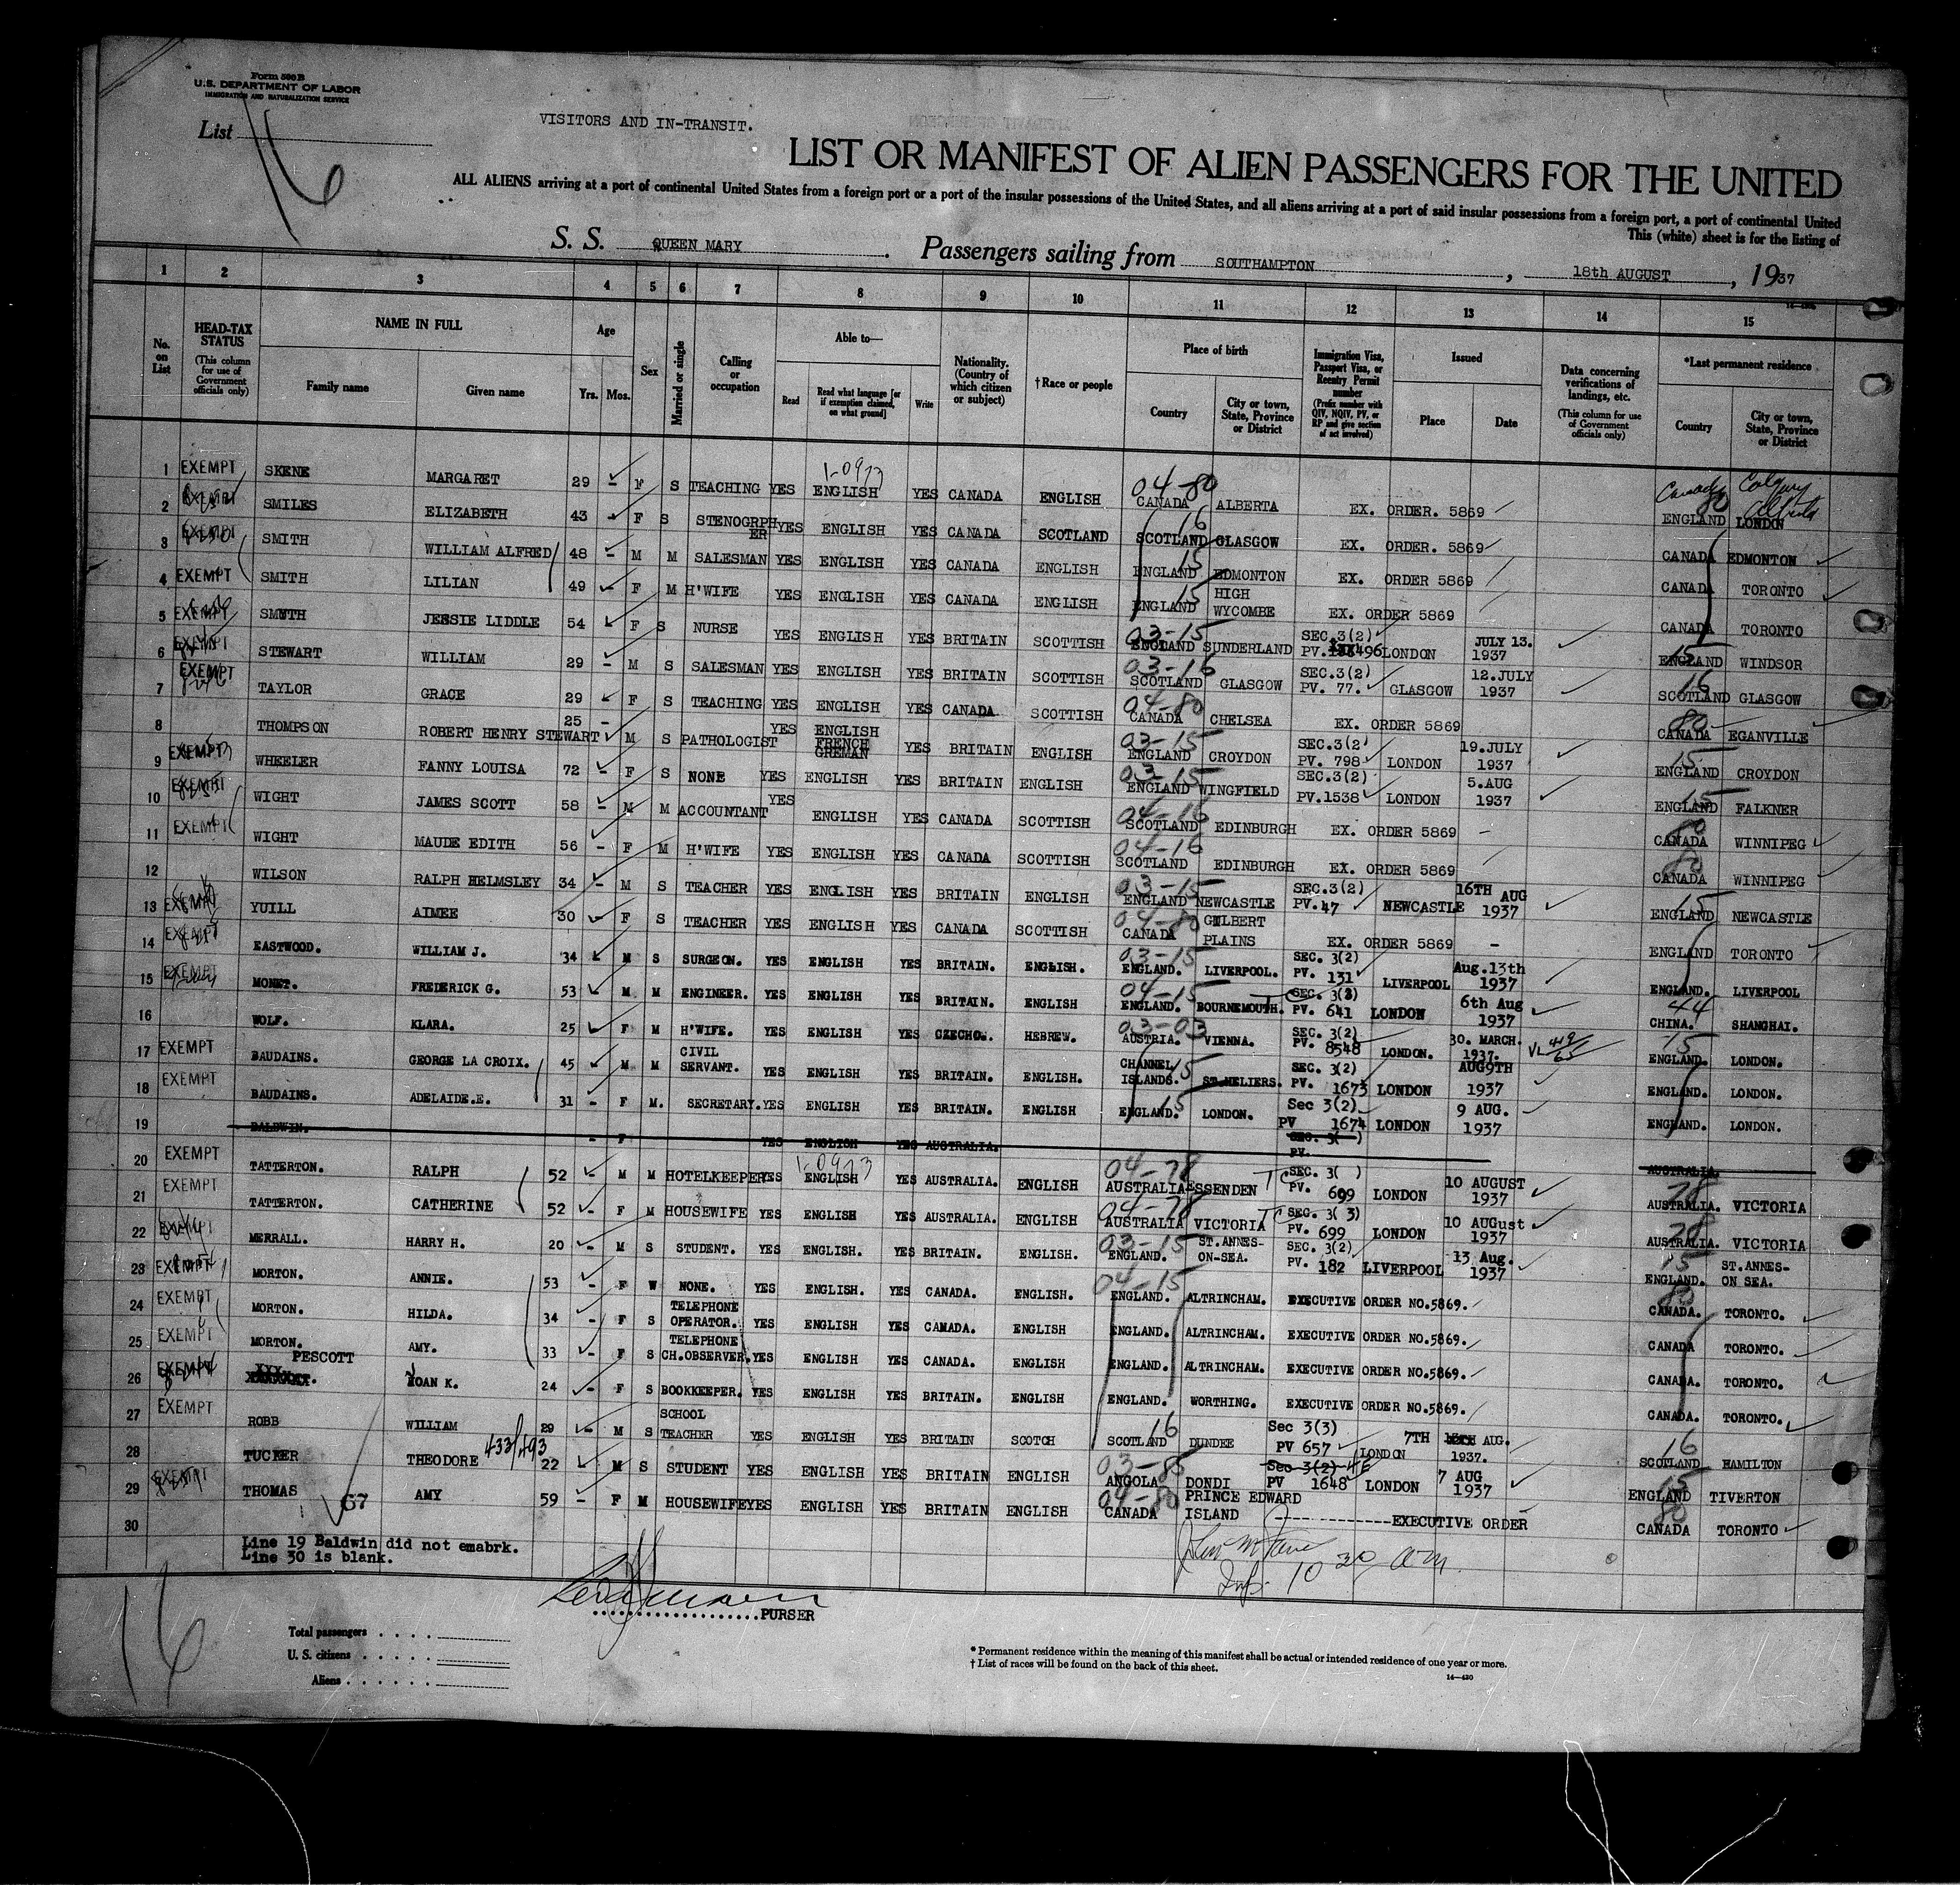 Form 500 B
U.S. DEPARTMENT OF LABOR
IMMIGRATION AND NATURALIZATION SERVICE
List 16
VISITORS AND IN-TRANSIT.
LIST OR MANIFEST OF ALIEN PASSENGERS FOR THE UNITED
ALL ALIENS arriving at a port of continental United States from a foreign port or a port of the insular possessions of the United States, and all aliens arriving at a port of said insular possessions from a foreign port, a port of continental United
This (white) sheet is for the listing of
S. S. QUEEN MARY. Passengers sailing from SOUTHAMPTON, 18th AUGUST, 1937
1 2 3 4 5 6 7 8 9 10 11 12 13 14 15
No. on List
HEAD-TAX STATUS (This column for use of Government officials only)
NAME IN FULL Family name Given name
Age Yrs. Mos.
Sex
Married or single
Calling or occupation
Able to— Read Read what language [or if exemption claimed, on what ground] Write
Nationality. (Country of which citizen or subject)
† Race or people
Place of birth Country City or town, State, Province or District
Immigration Visa, Passport Visa, or Reentry Permit number (Prefix number with QIV, NQIV, PV, or RP and give section of act involved)
Issued Place Date
Data concerning verifications of landings, etc. (This column for use of Government officials only)
*Last permanent residence Country City or town, State, Province or District
1 EXEMPT SKENE MARGARET 29 - F S TEACHING YES ENGLISH YES CANADA ENGLISH 04-80 CANADA ALBERTA EX. ORDER. 5869 Canada Calgary Alberta ENGLAND LONDON
2 EXEMPT SMILES ELIZABETH 43 F S STENOGRPHER YES ENGLISH YES CANADA SCOTLAND 16 SCOTLAND GLASGOW EX. ORDER. 5869 CANADA EDMONTON
3 EXEMPT SMITH WILLIAM ALFRED 48 - M M SALESMAN YES ENGLISH YES CANADA ENGLISH 15 ENGLAND EDMONTON EX. ORDER 5869 CANADA TORONTO
4 EXEMPT SMITH LILIAN 49 - F M H'WIFE YES ENGLISH YES CANADA ENGLISH 15 ENGLAND HIGH WYCOMBE EX. ORDER 5869 CANADA TORONTO
5 EXEMPT SMYTH JESSIE LIDDLE 54 F S NURSE YES ENGLISH YES BRITAIN SCOTTISH 03-15 ENGLAND SUNDERLAND SEC.3(2) PV. 496 LONDON JULY 13. 1937 15 ENGLAND WINDSOR
6 EXEMPT STEWART WILLIAM 29 - M S SALESMAN YES ENGLISH YES BRITAIN SCOTTISH 03-16 SCOTLAND GLASGOW SEC.3(2) PV. 77. GLASGOW 12.JULY 1937 16 SCOTLAND GLASGOW
7 EXEMPT TAYLOR GRACE 29 F S TEACHING YES ENGLISH YES CANADA SCOTTISH 04-80 CANADA CHELSEA EX. ORDER 5869 80 CANADA EGANVILLE
8 THOMPSON ROBERT HENRY STEWART 25 - M S PATHOLOGIST YES ENGLISH FRENCH GREMAN YES BRITAIN ENGLISH 03-15 ENGLAND CROYDON SEC.3(2) PV. 798 LONDON 19.JULY 1937 15 ENGLAND CROYDON
9 EXEMPT WHEELER FANNY LOUISA 72 - F S NONE YES ENGLISH YES BRITAIN ENGLISH 03-15 ENGLAND WINGFIELD SEC.3(2) PV.1538 LONDON 5.AUG 1937 15 ENGLAND FALKNER
10 EXEMPT WIGHT JAMES SCOTT 58 - M M ACCOUNTANT YES ENGLISH YES CANADA SCOTTISH 04-16 SCOTLAND EDINBURGH EX. ORDER 5869 - 80 CANADA WINNIPEG
11 EXEMPT WIGHT MAUDE EDITH 56 - F M H'WIFE YES ENGLISH YES CANADA SCOTTISH 04-16 SCOTLAND EDINBURGH EX. ORDER 5869 80 CANADA WINNIPEG
12 WILSON RALPH HELMSLEY 34 - M S TEACHER YES ENGLISH YES BRITAIN ENGLISH 03-15 ENGLAND NEWCASTLE SEC.3(2) PV.47 NEWCASTLE 16TH AUG 1937 15 ENGLAND NEWCASTLE
13 EXEMPT YUILL AIMEE 30 F S TEACHER YES ENGLISH YES CANADA SCOTTISH 04-80 CANADA GILBERT PLAINS EX. ORDER 5869 - ENGLAND TORONTO
14 EXEMPT EASTWOOD. WILLIAM J. 34 M S SURGEON. YES ENGLISH YES BRITAIN. ENGLISH. 03-15 ENGLAND. LIVERPOOL. SEC. 3(2) PV. 131 LIVERPOOL Aug.13th 1937 ENGLAND. LIVERPOOL
15 EXEMPT MONET. FREDERICK G. 53 M M ENGINEER. YES ENGLISH YES BRITAIN. ENGLISH 04-15 ENGLAND. BOURNEMOUTH. SEC. 3(3) PV. 641 LONDON 6th Aug 1937 44 CHINA. SHANGHAI.
16 WOLF. KLARA. 25 F M H'WIFE. YES ENGLISH YES CZECHO. HEBREW. 03-03 AUSTRIA. VIENNA. SEC. 3(2) PV. 8548 LONDON. 30. MARCH. 1937. 15 ENGLAND. LONDON.
17 EXEMPT BAUDAINS. GEORGE LA CROIX. 45 M M CIVIL SERVANT. YES ENGLISH YES BRITAIN. ENGLISH. CHANNEL ISLANDS. 15 ST.HELIERS. SEC. 3(2) PV. 1673 LONDON AUG9TH 1937 ENGLAND. LONDON.
18 EXEMPT BAUDAINS. ADELAIDE.E. 31 - F M. SECRETARY. YES ENGLISH YES BRITAIN. ENGLISH ENGLAND. 15 LONDON. Sec 3(2) PV 1674 LONDON 9 AUG. 1937 ENGLAND. LONDON.
19 BALDWIN. - F YES ENGLISH YES AUSTRALIA. SEC. 3( ) PV. AUSTRALIA.
20 EXEMPT TATTERTON. RALPH 52 M M HOTELKEEPER YES ENGLISH YES AUSTRALIA. ENGLISH 04-78 AUSTRALIA ESSENDEN TC SEC. 3( ) PV. 699 LONDON 10 AUGUST 1937 78 AUSTRALIA. VICTORIA
21 EXEMPT TATTERTON. CATHERINE 52 F M HOUSEWIFE YES ENGLISH YES AUSTRALIA. ENGLISH 04-78 AUSTRALIA VICTORIA TC SEC. 3( 3) PV. 699 LONDON 10 AUGust 1937 78 AUSTRALIA. VICTORIA
22 EXEMPT MERRALL. HARRY H. 20 - M S STUDENT. YES ENGLISH. YES BRITAIN. ENGLISH. 03-15 ENGLAND. ST.ANNES-ON-SEA. SEC. 3(2) PV. 182 LIVERPOOL 13 Aug. 1937 15 ENGLAND. ST.ANNES-ON SEA.
23 EXEMPT MORTON. ANNIE. 53 - F W NONE. YES ENGLISH. YES CANADA. ENGLISH. 04-15 ENGLAND. ALTRINCHAM. EXECUTIVE ORDER NO.5869. 80 CANADA. TORONTO.
24 EXEMPT MORTON. HILDA. 34 - F S TELEPHONE OPERATOR. YES ENGLISH YES CANADA. ENGLISH ENGLAND. ALTRINCHAM. EXECUTIVE ORDER NO.5869. CANADA TORONTO.
25 EXEMPT MORTON. AMY. 33 - F S TELEPHONE CH.OBSERVER. YES ENGLISH YES CANADA. ENGLISH ENGLAND. ALTRINCHAM. EXECUTIVE ORDER NO.5869. CANADA. TORONTO.
26 EXEMPT PESCOTT JOAN K. 24 - F S BOOKKEEPER. YES ENGLISH YES BRITAIN. ENGLISH ENGLAND. WORTHING. EXECUTIVE ORDER NO.5869. CANADA. TORONTO.
27 EXEMPT ROBB WILLIAM 29 - M S SCHOOL TEACHER YES ENGLISH YES BRITAIN SCOTCH SCOTLAND 16 DUNDEE Sec 3(3) PV 657 LONDON 7TH AUG. 1937. 16 SCOTLAND HAMILTON
28 TUCKER THEODORE 433/493 22 M S STUDENT YES ENGLISH YES BRITAIN ENGLISH 03-85 ANGOLA DONDI Sec 3(2) PV 1648 LONDON 7 AUG 1937 15 ENGLAND TIVERTON
29 EXEMPT THOMAS AMY 59 - F M HOUSEWIFE YES ENGLISH YES BRITAIN ENGLISH 04-80 CANADA PRINCE EDWARD ISLAND EXECUTIVE ORDER 80 CANADA TORONTO
30
Line 19 Baldwin did not emabrk.
Line 30 is blank.
10 30 am.
PURSER
16
Total passengers
U. S. citizens
Aliens
* Permanent residence within the meaning of this manifest shall be actual or intended residence of one year or more.
† List of races will be found on the back of this sheet.
14—430